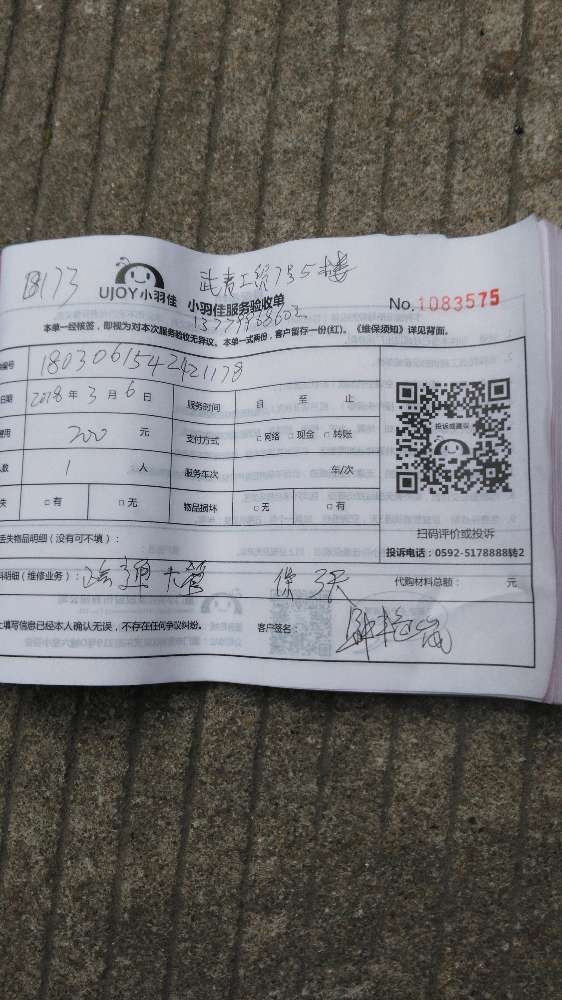 B173
UJOY小羽佳 小羽佳服务验收单
7号5楼
No.1083575
本单一经核签，即视为对本次服务验收无异议。本单一式两份，客户留存一份(红)。《维保须知》详见背面。
编号 1803061542421178
日期 2018年3月6日 服务时间 自 至 止
费用 200 元 支付方式 □网络 □现金 □转账
人数 1 人 服务车次 车/次
失 □有 □无 物品损坏 □无 □有
投诉或建议
扫码评价或投诉
投诉电话：0592-5178888转2
丢失物品明细（没有可不填）：
料明细（维修业务）： 疏通大管 保3天 代购材料总额： 元
上填写信息已经本人确认无误，不存在任何争议纠纷。 客户签名：